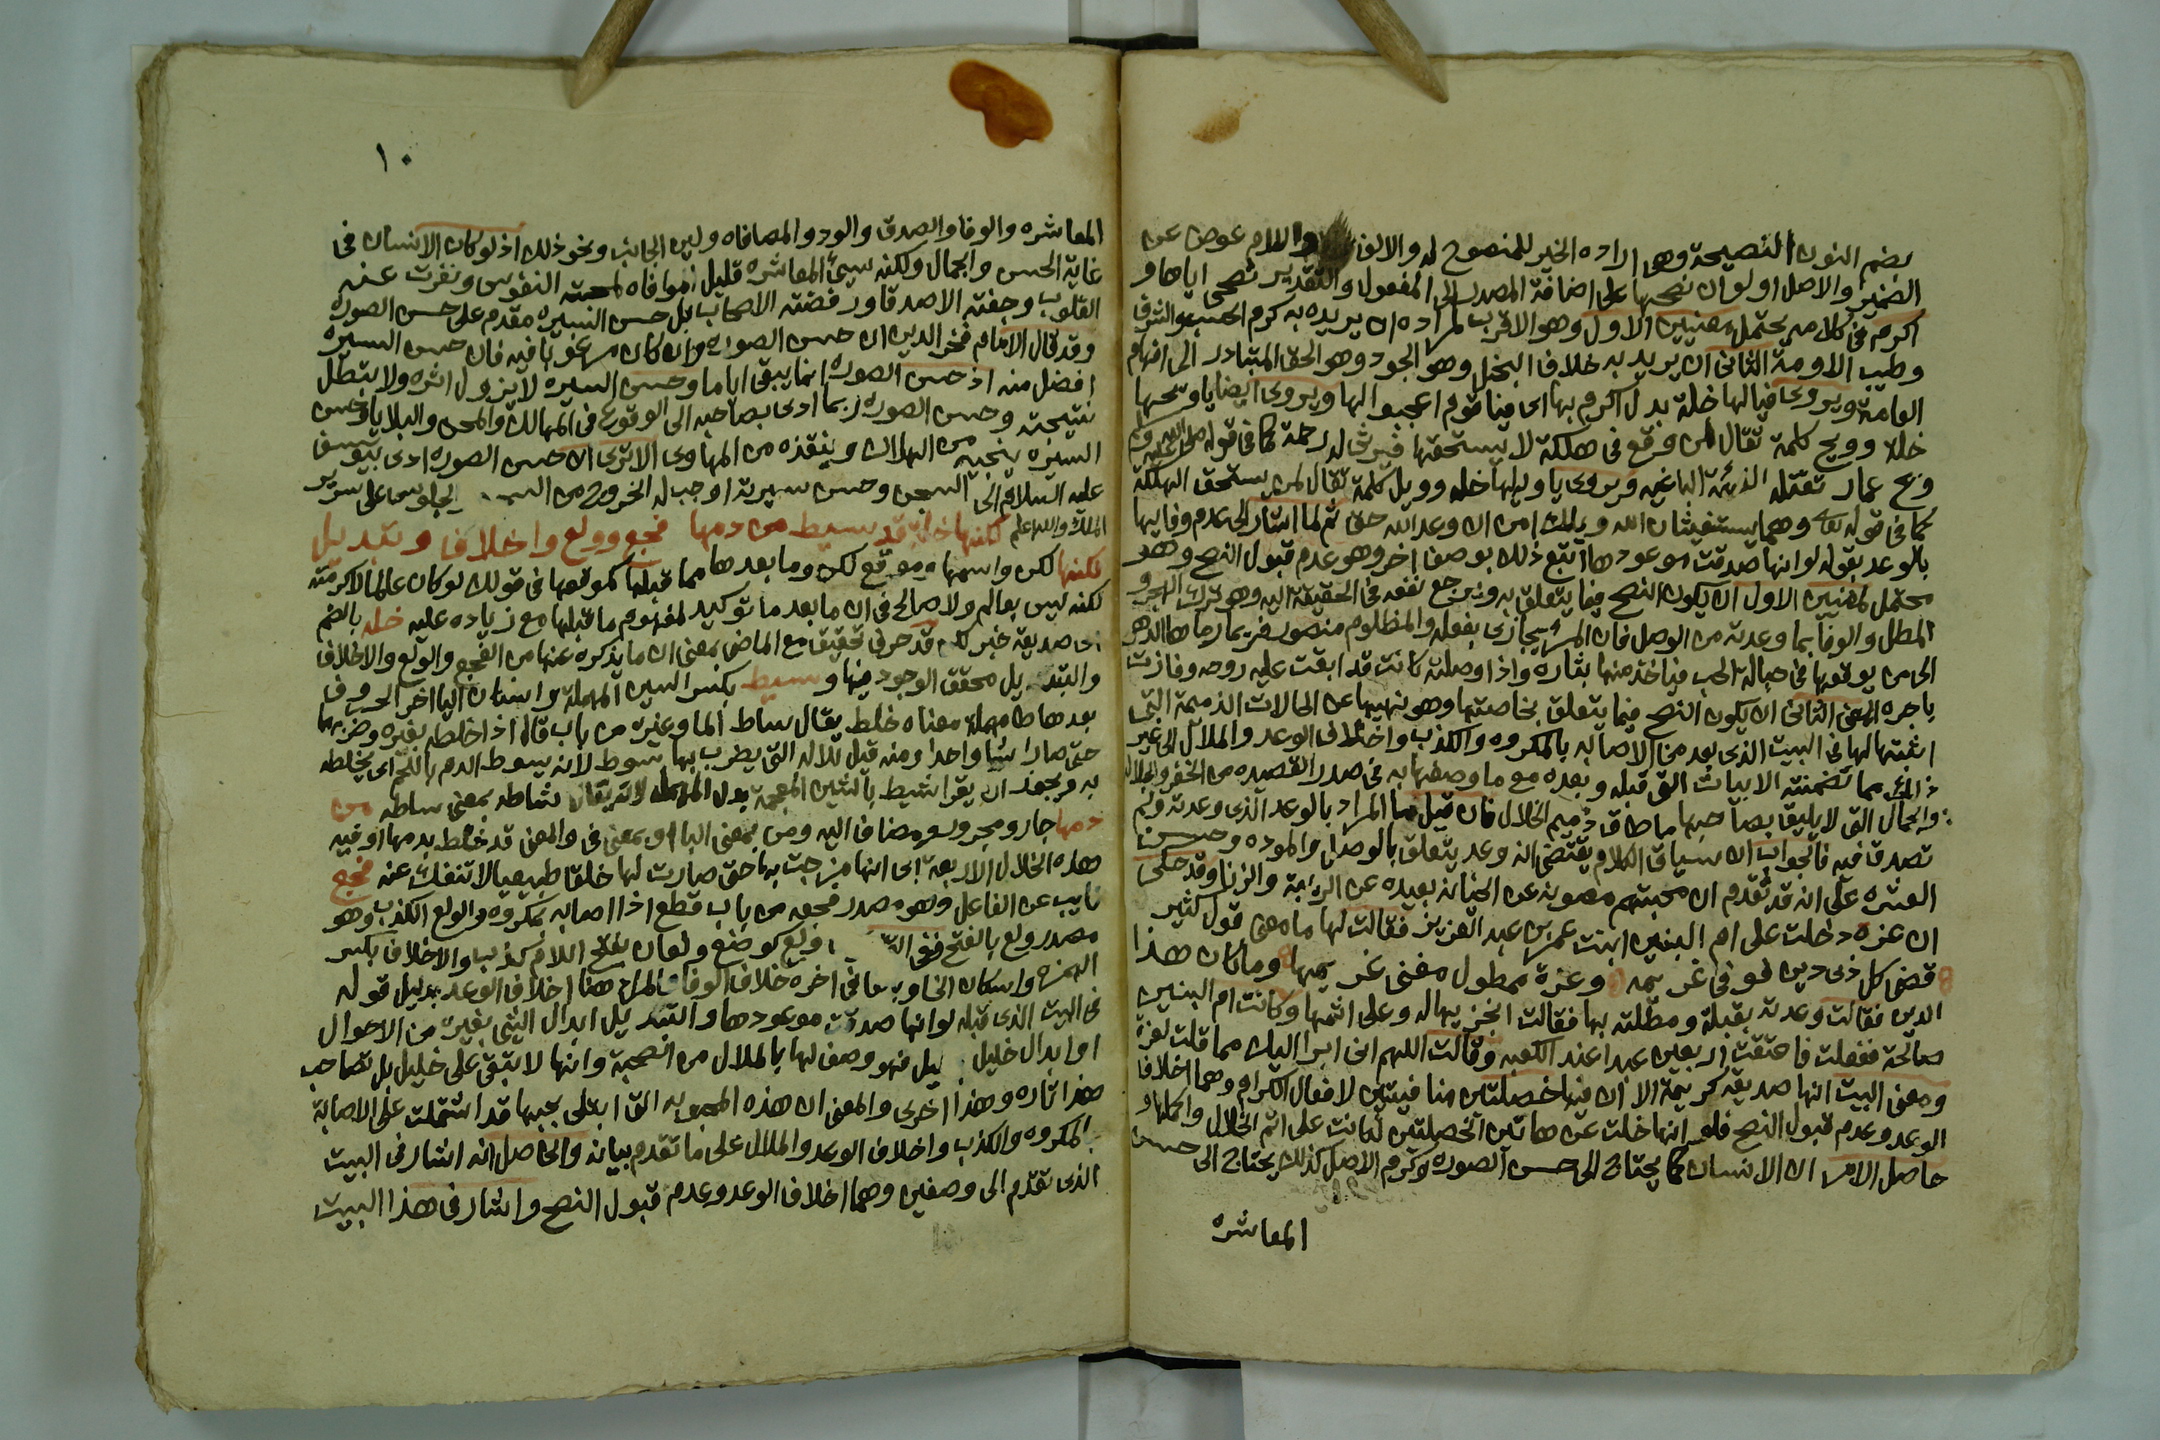 بضم النون النصيحة وهى الاراده الخير للمنصوح له والالف واللام عوض عن
الضمير والاصل او لو ان نصحها على اضافة المصدر الى المفعول والتقدير نصحى اياها و
اكرم فى كلامه يحتمل معنيين الاول وهو الاقرب لمراده ان يريد به كرم الحسب والشرف
وطيب الارومة الثانى ان يريد به خلاف البخل وهو الجود وهو الحق المتبادر الى افهام
العامة ويروى فيالها خلة بدل اكرم بها اى فيا قوم اعجبوا لها ويروى ايضا يا ويحها
خلة وويح كلمة تقال لمن وقع فى هلكة لا يستحقها فيرثى له رحمة كما فى قوله صلى الله عليه وسلم
ويح عمار تقتله الفئة الباغيه ويروى يا ويلها خله وويل كلمة تقال لمن يستحق الهلكة
كما فى قوله تعالى وهما يستغيثان الله ويلك امن ان وعد الله حق ثم لما اشار الى عدم وفايها
بالوعد بقوله لو انها صدقت موعودها اتبع ذلك بوصف اخر وهو عدم قبول النصح وهو
محتمل لمعنيين الاول ان يكون النصح فيما يتعلق به ويرجع نفعه فى الحقيقة اليه وهو ترك الهجر و
المطل والوفا بما وعدته من الوصل فان المرء يجازى بفعله والمظلوم منصور فربما رماها الدهر
الى من يوقعها فى حبالة الحب فياخذ منها بثاره واذا وصلته كانت قد ابقت عليه روحه وفازت
باجره المعنى الثانى ان يكون النصح فيما يتعلق بخاصتها وهو نهيها عن الحالات الذميمة التى
اثبتها لها فى البيت الذى بعد من الاصابه بالمكروه والكذب واختلاف الوعد والملال الى غير
ذلك مما تضمنته الابيات التى قبله وبعده مع ما وصفها به فى صدر القصيده من الخفر والجلاله
والجمال التى لا يليق بصاحبها ما طاق ذميم الخلال فان قيل ما المراد بالوعد الذى وعدته ولم
تصدق فيه فالجواب ان سياق الكلام يقتضى انه وعد يتعلق بالوصل والموده وحسن
العشره على انه قد تقدم ان محبتهم مصونة عن الخنا نه بعيده عن الريبة والزنا وقد حكى
ان عزه دخلت على ام البنين ابنت عمر بن عبد العزيز فقالت لها ما معنى قول كثير
قضى كل ذى دين فوفى غريمه وعزة ممطول معنى غريمها وما كان هذا
الدين فقالت وعدته بقبلة ومطلته بها فقالت انجزيها له وعلى اثمها وكانت ام البنين
صالحة ففعلت فاعتقت اربعين عبدا عند الكعبه وقالت اللهم انى ابرا اليك مما قلت لعزة
ومعنى البيت انها صديقة كريمة الا ان فيها خصلتين منافيتين لافعال الكرام وهما اخلاف
الوعد وعدم قبول النصح فلو انها خلت عن هاتين الخصلتين لكانت على اتم الخلال واكملها و
حاصل الامر ان الانسان كما يحتاج الى حسن الصوره وكرم الاصل كذلك يحتاج الى حسن
المعاشره
١٠
المعاشره والوفا والصدق والود والمصافاه ولين الجانب ونحو ذلك اذ لو كان الانسان فى
غاية الحسن والجمال ولكنه سيئ المعاشره قليل الموافاه لمجته النفوس ونفرت عنه
القلوب وجفته الاصدقا ورفضته الاصحاب بل حسن السيره مقدم على حسن الصوره
وقد قال الامام فخر الدين ان حسن الصوره وان كان مرغوبا فيه فان حسن السيره
افضل منه اذ حسن الصوره انما يبقى اياما وحسن السيره لا يزول اثره ولا يبطل
نتيجته وحسن الصوره ربما ادى بصاحبه الى الوقوع فى المهالك والمحن والبلايا وحسن
السيره ينجيه من الهلاك وينقذه من المهاوى الا ترى ان حسن الصوره ادى بيوسف
عليه السلام الى السجن وحسن سيرته اوجب له الخروج من الجلوس على سرير
الملك والله اعلم لكنها خلة قد سيط من دمها فجع وولع واخلاف وتبديل
لكنها لكن واسمها وموقع لكن وما بعدها مما قبلها كموقعها فى قولك لو كان عالما لاكرمته
لكنه ليس بعالم ولا صالح فى ان ما بعد ما توكيد لمفهوم ما قبلها مع زياده عليه خله بالضم
اى صديقة خبر لكن قد حرف تحقيق مع الماضى بمعنى ان ما يذكره عنها من الفجع والولع والاخلاف
والتبديل محقق الوجود فيها وسيط بكسر السين المهملة واسكان اليا اخر الحروف
بعدها طا مهملة معناه خلط يقال ساط الما وغيره من باب قال اذا خلطه بغيره وضربهما
حتى صارا شيا واحدا ومنه قيل للاله التى يضرب بها سوط لانه يسوط الدم باللحم اى يخلطه
به ويجوز ان يقرا شيط بالشين المعجمة بدل المهملة لانه يقال شاطه بمعنى ساطه من
دمها جار ومجرور ومضاف اليه ومن بمعنى البا او بمعنى فى والمعنى قد خلط بدمها او فيه
هذه الخلال الاربعة اى انها مزجت بها حتى صارت لها خلقا طبيعيا لا تنفك عنه فجع
نايب عن الفاعل وهو مصدر فجعه من باب قطع اذا اصابه بمكروه والولع الكذب وهو
مصدر ولع بالفتح ففى ولع كوضع ولعان بفتح اللام كذب والاخلاف بكسر
الهمزه واسكان الخا وبالفا فى اخره خلاف الوفا والمراد هنا اخلاف الوعد بدليل قوله
فى البيت الذى قبله لو انها صدقت موعودها والتبديل ابدال الشى بغيره من الاحوال
او ابدال خليل فهو وصف لها بالملال من الصحبة وانها لا تبقى على خليل بل تصاحب
هذا تاره وهذا اخرى والمعنى ان هذه المحبوبه التى ابتلى بحبها قد اشتملت على الاصابة
بالمكروه والكذب واخلاف الوعد والملال على ما تقدم بيانه والحاصل انه اشار فى البيت
الذى تقدم الى وصفين وهما اخلاف الوعد وعدم قبول النصح واشار فى هذا البيت